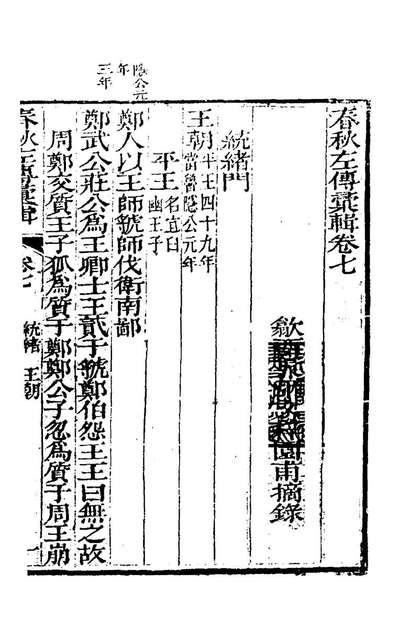 春秋左傳彙輯卷七
歙 園甫摘錄
統緒門
王朝平王四十九年當魯隱公元年
平王名宜臼幽王子
隱公元年
鄭人以王師虢師伐衛南鄙
三年
鄭武公莊公為王卿士王貳于虢鄭伯怨王王曰無之故
周鄭交質王子狐為質于鄭鄭公子忽為質于周王崩
春秋左傳彙輯
卷七
統緒
王朝
一